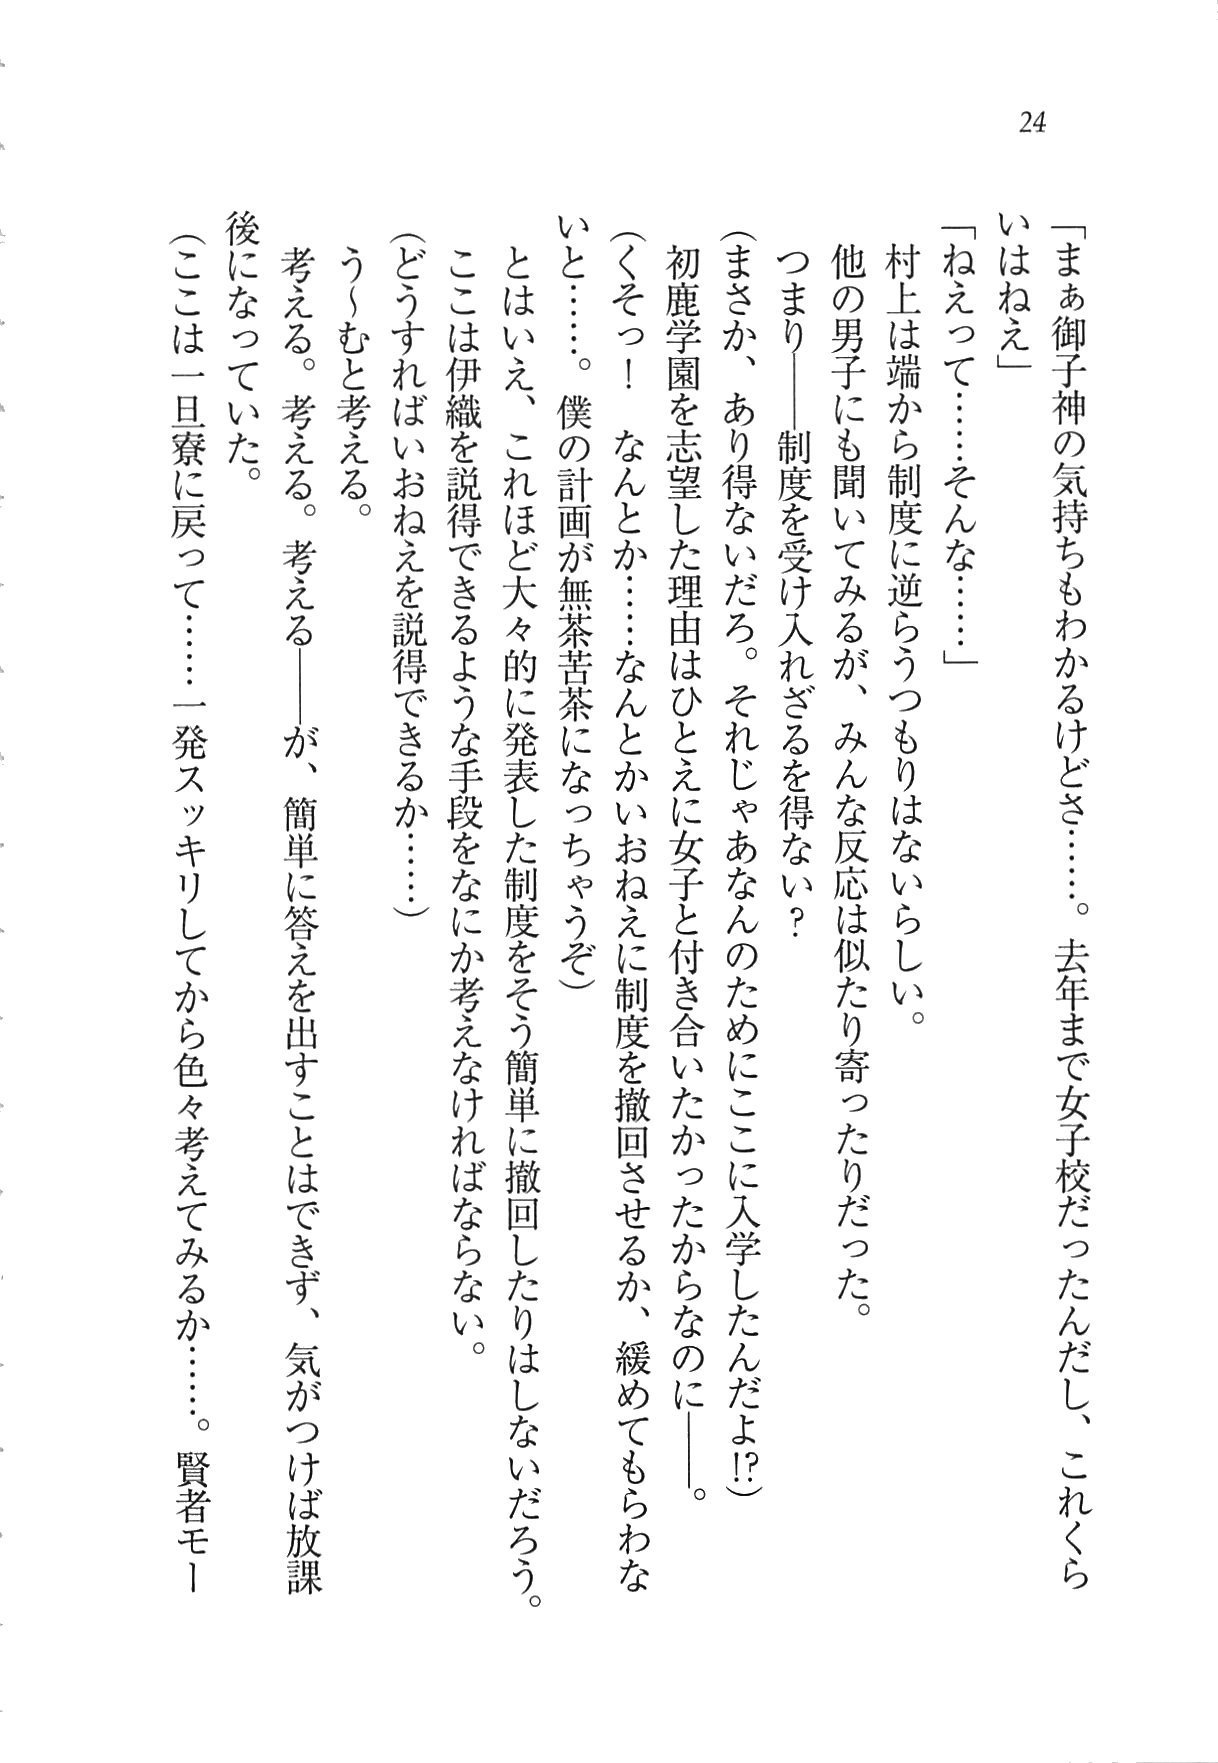 24
「まぁ御子神の気持ちもわかるけどさ……。去年まで女子校だったんだし、これくら
いはねえ」
「ねえって……そんな……」
村上は端から制度に逆らうつもりはないらしい。
他の男子にも聞いてみるが、みんな反応は似たり寄ったりだった。
つまり――制度を受け入れざるを得ない？
（まさか、あり得ないだろ。それじゃあなんのためにここに入学したんだよ!?）
初鹿学園を志望した理由はひとえに女子と付き合いたかったからなのに――。
（くそっ！　なんとか……なんとかいおねえに制度を撤回させるか、緩めてもらわな
いと……。僕の計画が無茶苦茶になっちゃうぞ）
とはいえ、これほど大々的に発表した制度をそう簡単に撤回したりはしないだろう。
ここは伊織を説得できるような手段をなにか考えなければならない。
（どうすればいおねえを説得できるか……）
う～むと考える。
考える。考える。考える――が、簡単に答えを出すことはできず、気がつけば放課
後になっていた。
（ここは一旦寮に戻って……一発スッキリしてから色々考えてみるか……。賢者モー